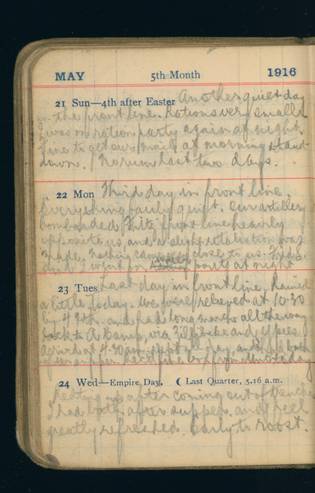 MAY 5th Month 1916
21 Sun—4th after Easter Another quiet day
in the front line. Rations very small.
I was on ration party again at night.
Time to get our mail at morning stand
down. No rum last two days.
22 Mon Third day in front line.
Everything fairly quiet. Our artillery
bombarded Fritz front line heavily
opposite us and a slight retaliation was
made, nothing came close to us.
and I went for parts at night
23 Tues Last day in front line. Rained
a little today. We were relieved at 10.30
by and had a long march all the way
back to A Camp, via Zillebeke and Ypres.
at 4.30am. slept all day, and
24 Wed—Empire Day. ☾ Last Quarter, 5.16 a.m.
Resting up after coming out of trenches
I had bath after supper, and feel
greatly refreshed. Early to roost.